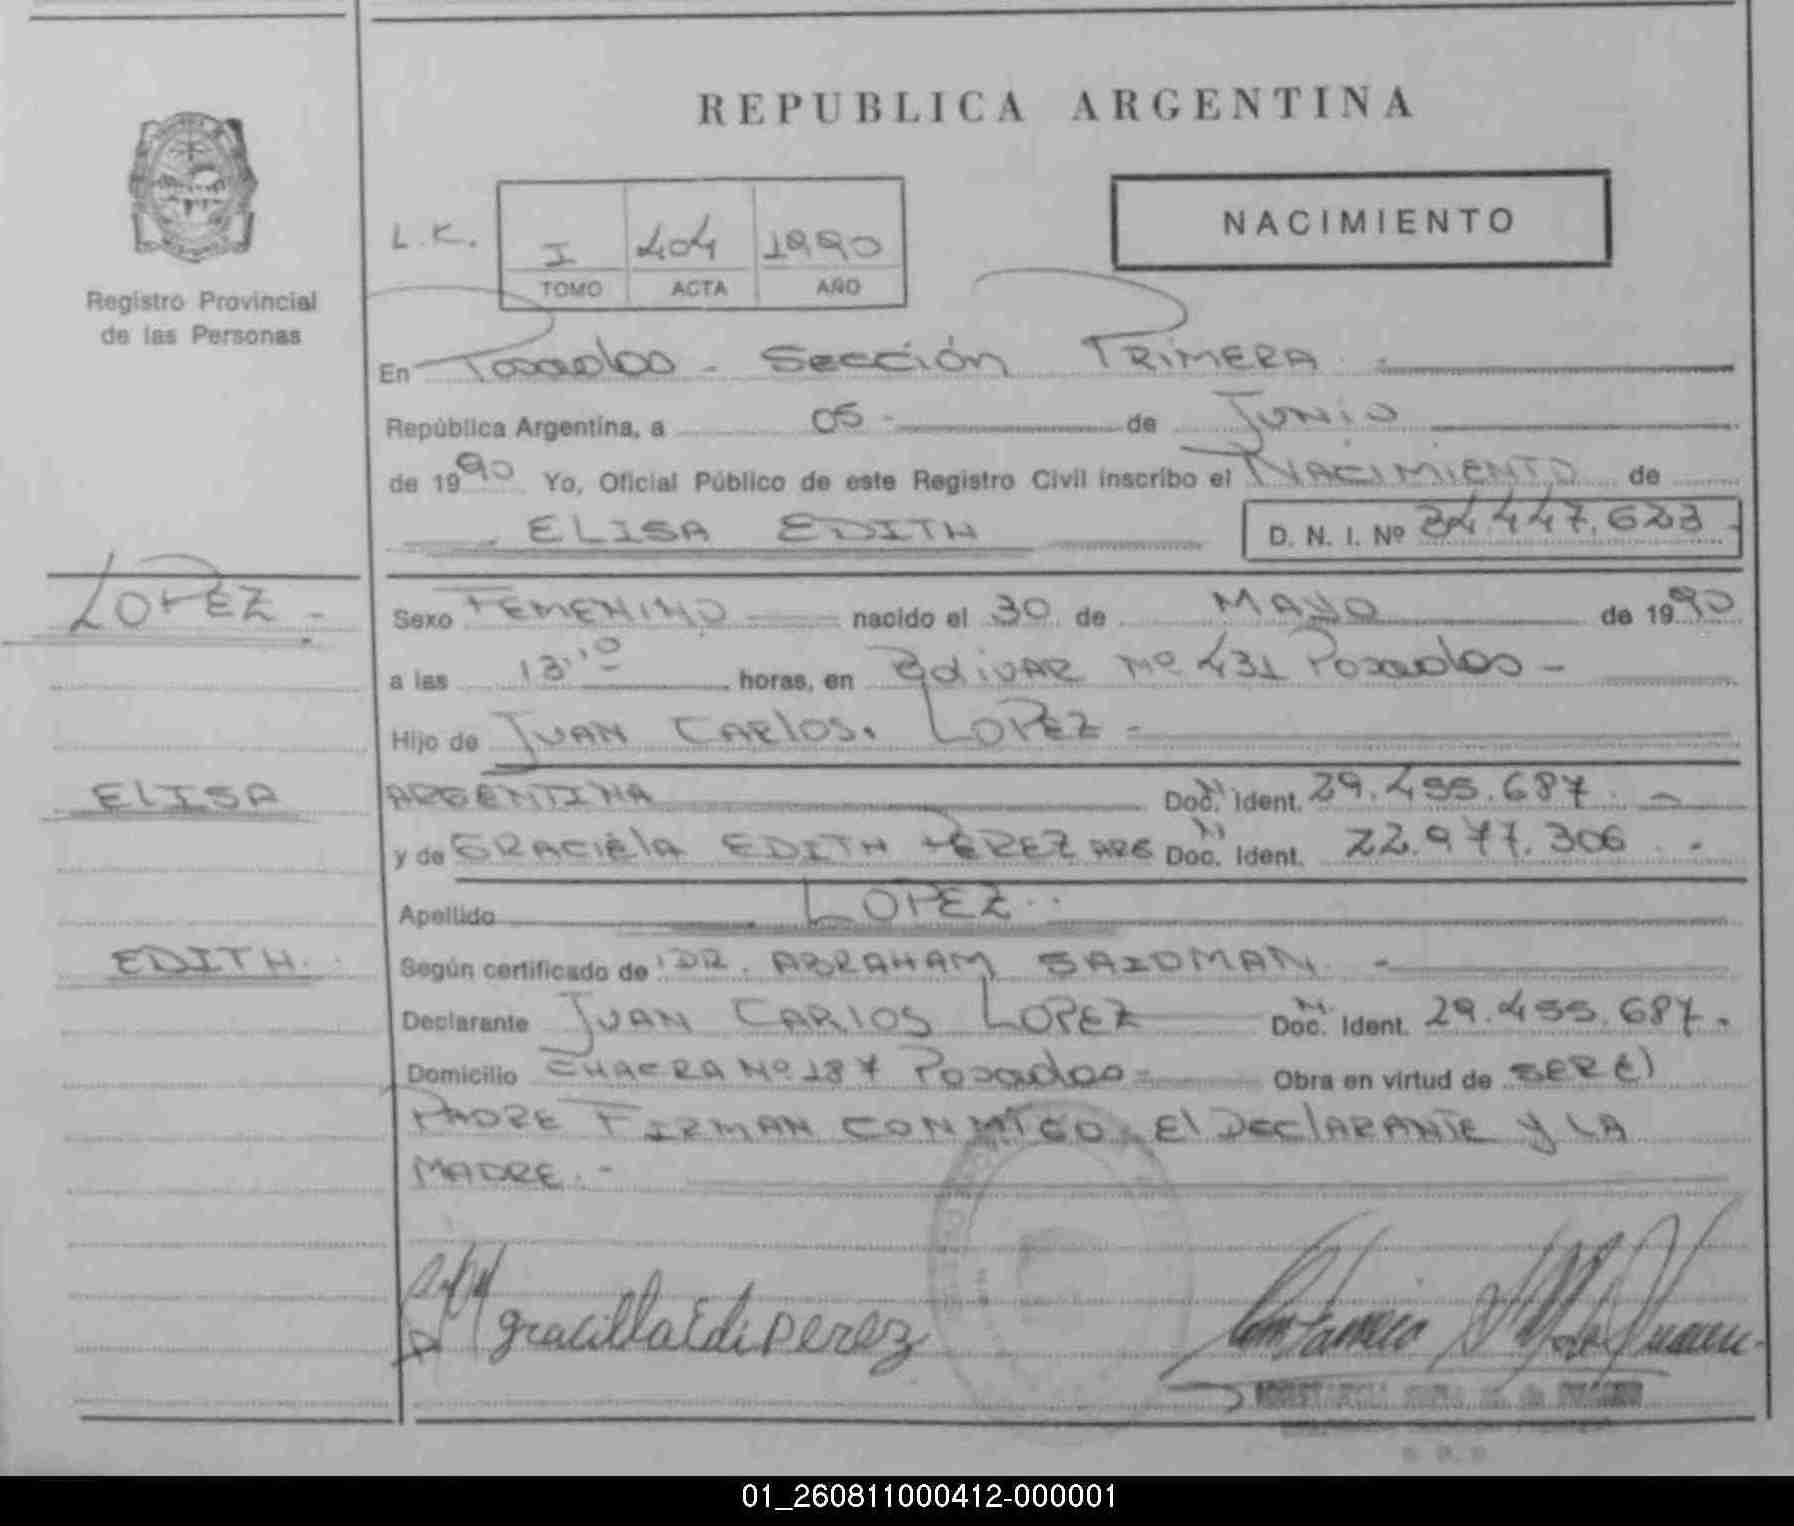 REPUBLICA ARGENTINA
NACIMIENTO
L.K. I 404 1990
TOMO ACTA AÑO
Registro Provincial
de las Personas
En Posadas - Sección PRIMERA
República Argentina, a 05 - de JUNIO
de 1990 Yo, Oficial Público de este Registro Civil inscribo el NACIMIENTO de
ELISA EDITH D. N. I. Nº 34.447.623
LOPEZ -
Sexo FEMENINO nacido el 30 de MAYO de 1990
a las 13,10 horas, en BOLIVAR Nº 431 Posadas -
Hijo de JUAN CARLOS LOPEZ -
ELISA
ARGENTINA Doc. Ident. 29.455.687 -
y de GRACIELA EDITH PEREZ ARG Doc. Ident. 22.977.306 -
Apellido LOPEZ
EDITH
Según certificado de DR. ABRAHAM SAIDMAN -
Declarante JUAN CARLOS LOPEZ Doc. Ident. 29.455.687.
Domicilio CHACRA Nº 187 Posadas - Obra en virtud de SER El
PADRE FIRMAN CONMIGO El DEClARANTE y LA
MADRE. -
gracilla Edi perez
01_260811000412-000001